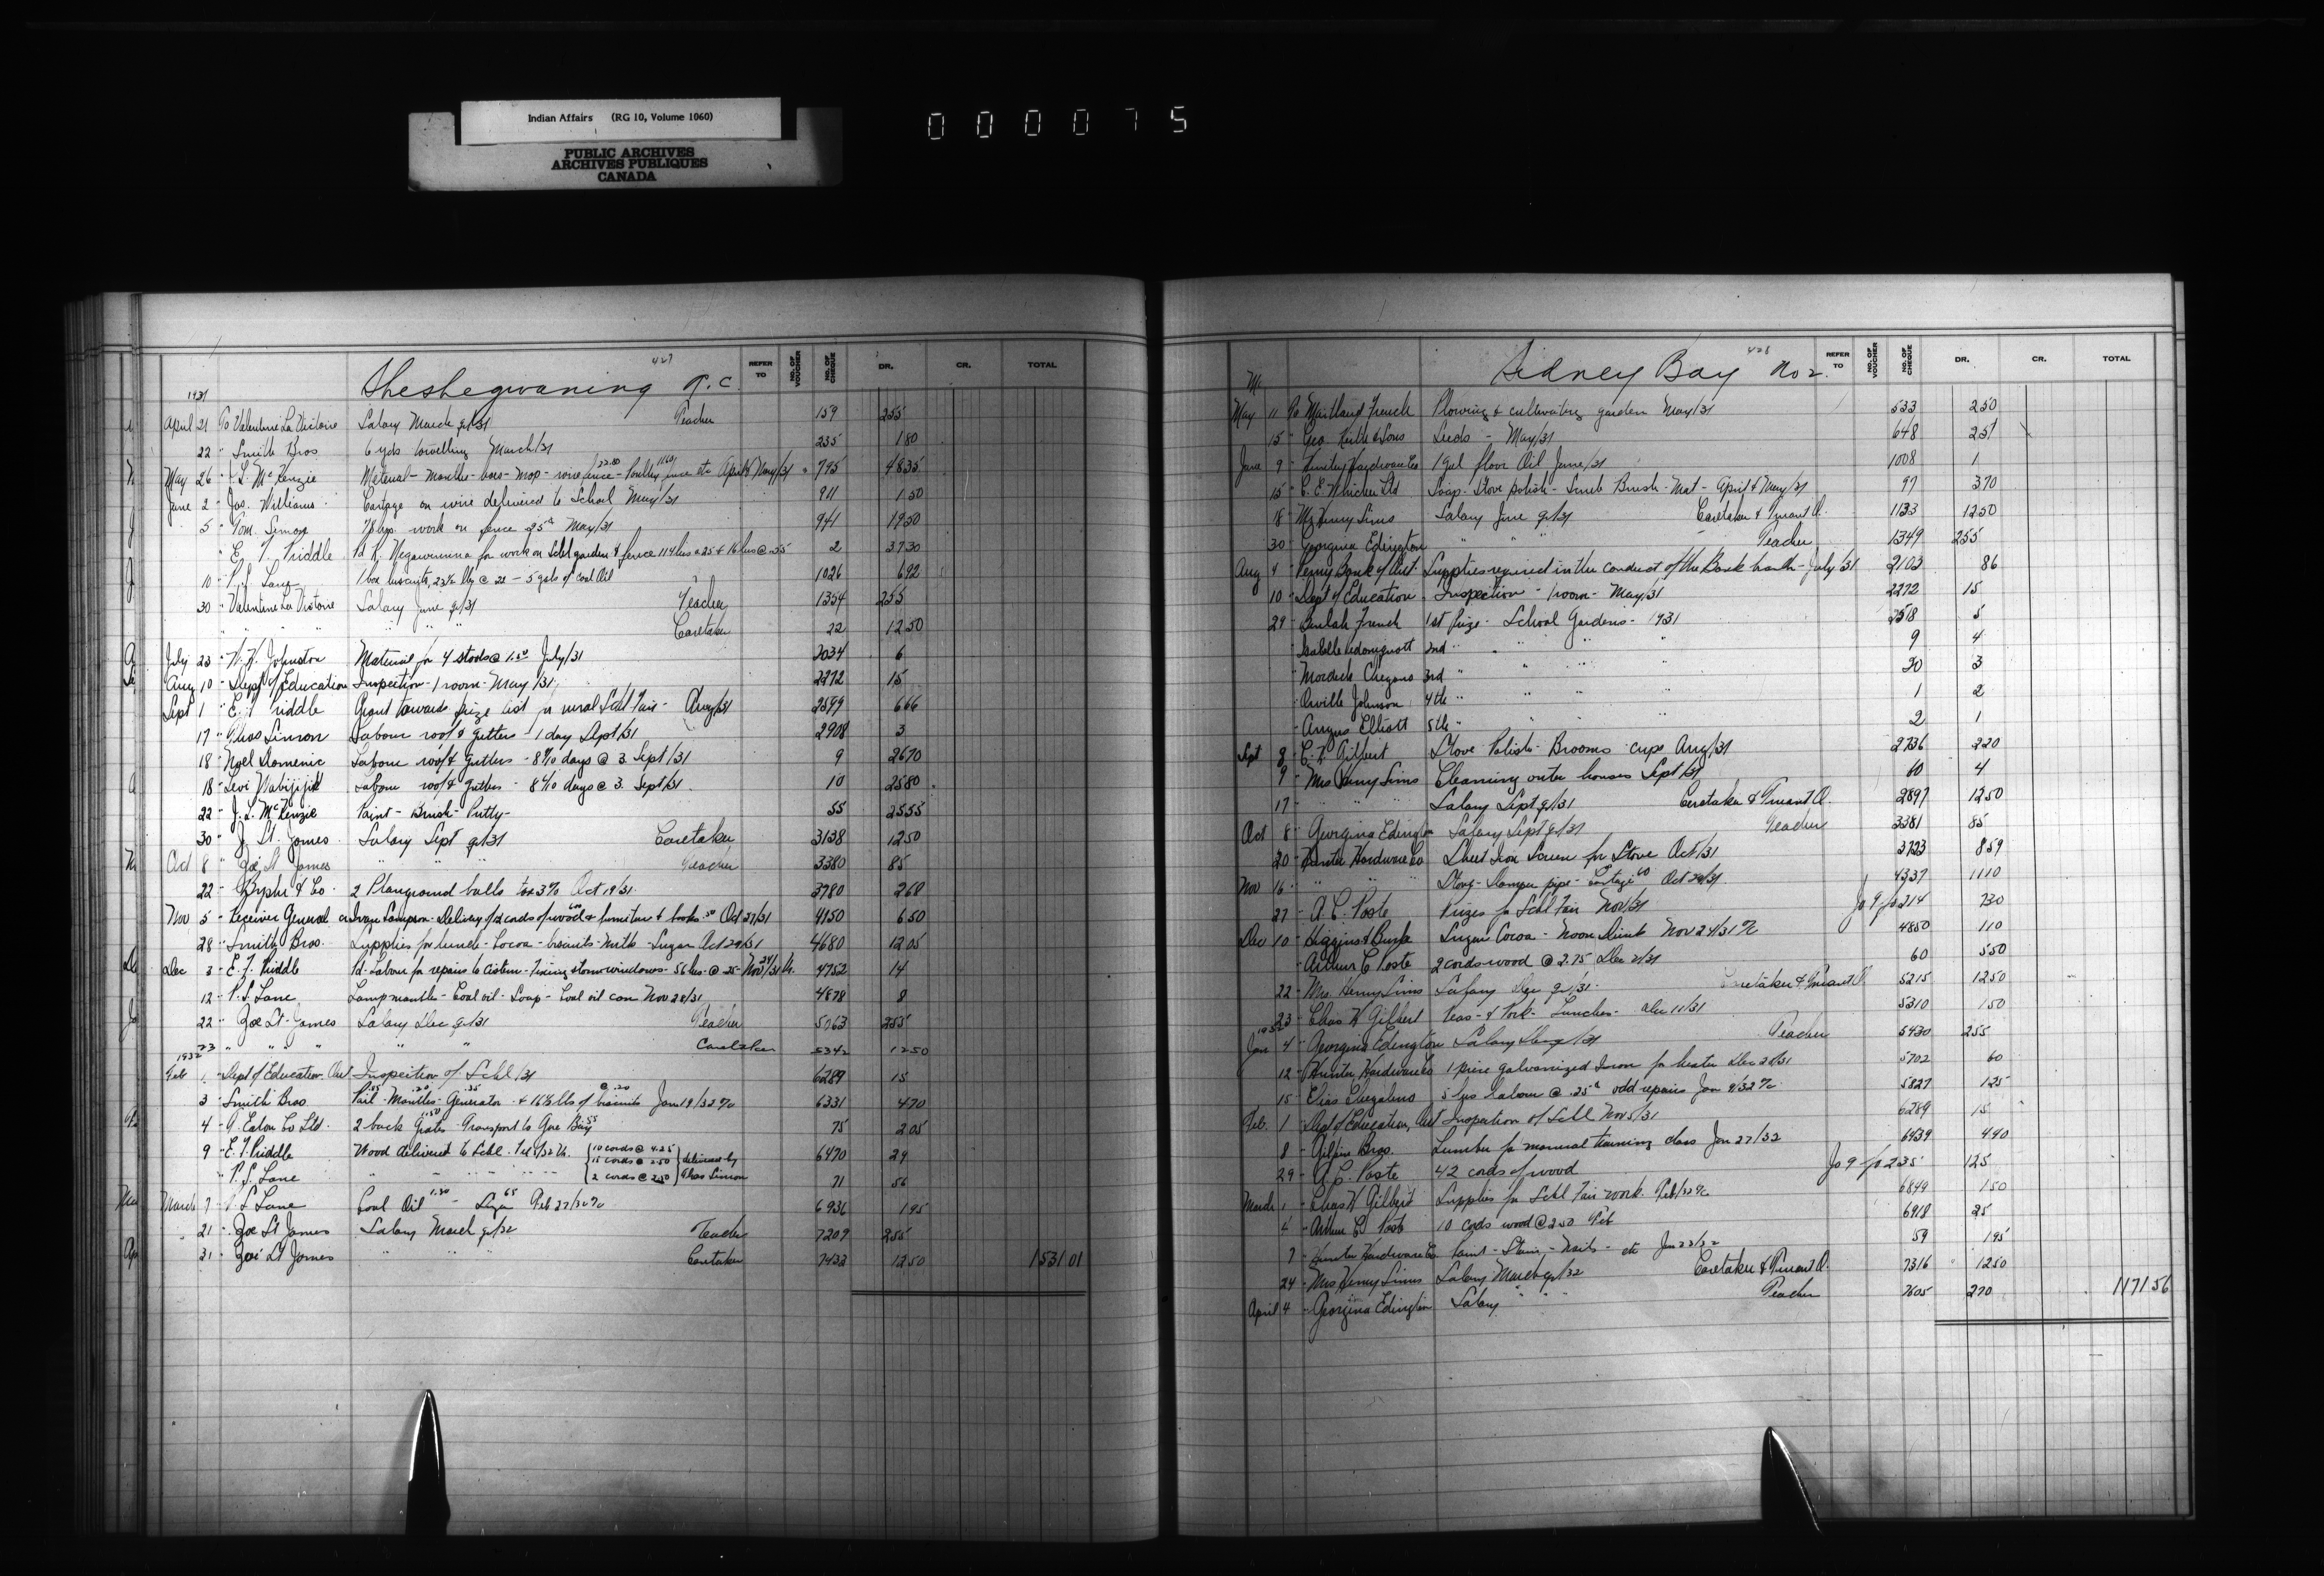 Indian Affairs (RG 10, Volume 1060)
PUBLIC ARCHIVES
ARCHIVES PUBLIQUES
CANADA
000075
427
Sheshegwaning R.C.
REFER TO NO. OF VOUCHER NO. OF CHEQUE DR. CR. TOTAL
1931
April 21 To Valentine La Victoire Salary March qr/31 Teacher 159 255
22 " Smith Bros 6 yds towelling March/31 235 1 80
May 26 " J. L. McKenzie Material - mantles - hoes - mop - wire fence 22.80 - Poultry fence etc April & May/31 795 48 35
June 2 " Jos. Williams Cartage on wire delivered to School May/31 911 1 50
5 " Tom. Simon 78 hrs. work on fence 25¢ May/31 941 19 50
" E. T. Priddle Pd K. Negawnumna for work on Schl garden & fence 114 hrs @ 25 & 16 hrs @ .55 2 37 30
10 " P. S. Lane 1 box biscuits, 23½ lbs @ 22 - 5 gals of Coal Oil 1026 6 92
30 " Valentine La Victoire Salary June qr/31 Teacher 1354 255
" " " " " " Caretaker 22 12 50
July 23 " N. H. Johnston Material for 4 stools @ 1.50 July/31 2034 6
Aug 10 " Dept of Education Inspection - 1 room - May/31 2272 15
Sept 1 " E. T. Priddle Grant towards prize list for rural Schl Fair - Aug/31 2599 6 66
17 " Thos Simon Labour roof & gutters - 1 day Sept/31 2908 3
18 " Noel Domenic Labour roof & gutters - 8 9/10 days @ 3. Sept/31 9 26 70
18 " Levi Wabijijik Labour roof & gutters - 8 6/10 days @ 3. Sept/31 10 25 80
22 " J. L. McKenzie Paint - Brush - Putty - 55 25 55
30 " J. St. James Salary Sept qr/31 Caretaker 3138 12 50
Oct 8 " Zoé St James " " " Teacher 3380 85
22 " & Co. 2 Playground balls tax 3% Oct 19/31 3780 2 68
Nov 5 " Receiver General Delivery of 2 cords of wood & furniture & books .50 Oct 27/31 4150 6 50
28 " Smith Bros. Supplies for lunch - Cocoa - biscuits - milk - Sugar Oct 29/31 4680 12 05
Dec 3 " E. T. Priddle Pd. Labour for repairs to cistern - Fixing storm windows - 56 hrs. @ 25 - Nov 24/31 4752 14
12 " P. S. Lane Lamp mantles - Coal oil - Soap - Coal oil can Nov 28/31 4878 8
22 " Zoé St. James Salary Dec qr/31 Teacher 5263 255
23 " " " " " " Caretaker 5342 12 50
1932
Feb 1 " Dept of Education, Ont Inspection of Schl /31 6289 15
3 " Smith Bros Pail - Mantles - Generator & 16⅔ lbs of biscuits Jan 19/32 6331 4 70
4 " T. Eaton Co Ltd. 2 back Grates 1.50 - Transport to Gore Bay 55 75 2 05
9 " E. T. Priddle Wood delivered to Schl. Feb/32 10 cords @ 4.25 6470 29
15 cords @ 2.50 delivered by
" P. S. Lane " " " " 2 cords @ 2.50 Thos Simon 71 56
March 7 " P. S. Lane Coal Oil 1.30 - 65 Feb 27/32 6936 1 95
21 " Zoé St James Salary March qr/32 Teacher 7209 255
31 " Zoé St James " " " Caretaker 7432 12 50 1531 01
428
Sidney Bay No 2.
REFER TO NO. OF VOUCHER NO. OF CHEQUE DR. CR. TOTAL
May 11 To Maitland French Plowing & cultivating garden May/31 533 2 50
15 " Geo. Keith & Sons Seeds - May/31 648 2 51
June 9 " Hunter Hardware Co 1 gal floor Oil June/31 1008 1
15 " C. E. Whicher Ltd Soap - Stove polish - Scrub Brush - Mat - April & May/31 97 3 70
18 " Mrs Henry Sims Salary June qr/31 Caretaker & Truant O. 1133 12 50
30 " Georgina Edington " " " Teacher 1349 255
Aug 4 " Penny Bank of Ont. Supplies required in the conduct of the Bank - July/31 2103 86
10 " Dept of Education Inspection - 1 room - May/31 2272 15
29 " Beulah French 1st prize - School Gardens - 1931 2518 5
" Isabelle 2nd " " " 9 4
" Mordick Chegano 3rd " " " 20 3
" Orville Johnson 4th " " " 1 2
" Angus Elliott 5th " " " 2 1
Sept 8 " C. W. Gilbert Stove Polish - Brooms - cups Aug/31 2736 2 20
9 " Mrs Henry Sims Cleaning outer houses Sept/31 60 4
17 " " " " Salary Sept qr/31 Caretaker & Truant O. 2897 12 50
Oct 8 " Georgina Edington Salary Sept qr/31 Teacher 3381 85
20 " Hunter Hardware Co Sheet Iron Screen for Stove Oct/31 3723 8 59
Nov 16 " " " Stove - Damper pipe - Cartage 60 Oct 29/31 4337 11 10
27 " A. C. Poste Prizes for Schl Fair Nov/31 Jo 9 fo 214 7 30
Dec 10 " Higgins & Burke Sugar Cocoa - Noon Drink Nov 24/31 4850 1 10
" Arthur C Poste 2 cords wood @ 2.75 Dec 2/31 60 5 50
22 " Mrs. Henry Sims Salary Dec qr/31. Caretaker & Truant O. 5215 12 50
23 " Chas W Gilbert Peas & Pork - Lunches - Dec 11/31 5310 1 50
1932
Jan 4 " Georgina Edington Salary Dec qr/31 Teacher 5430 255
12 " Hunter Hardware Co 1 piece galvanized Iron for heater Dec 28/31 5702 60
15 " Elias 5 hrs labour @ .25¢ odd repairs Jan 9/32 5827 1 25
Feb. 1 " Dept of Education, Ont Inspection of Schl Nov 5/31 6289 15
8 " Gilpin Bros. Lumber for manual training class Jan 27/32 6439 4 90
29 " A. C. Poste 42 cords of wood Jo 9 fo 235 125
March 1 " Chas W Gilbert Supplies for Schl Fair work. Feb/32 6849 1 50
4 " Arthur C Poste 10 cords wood @ 2.50 Feb 6918 25
7 " Hunter Hardware Co Paint - Stain - Nails - etc Jan 23/32 59 1 95
24 " Mrs Henry Sims Salary March qr/32 Caretaker & Truant O. 7316 12 50
April 4 " Georgina Edington Salary " " Teacher 7605 270 1171 56